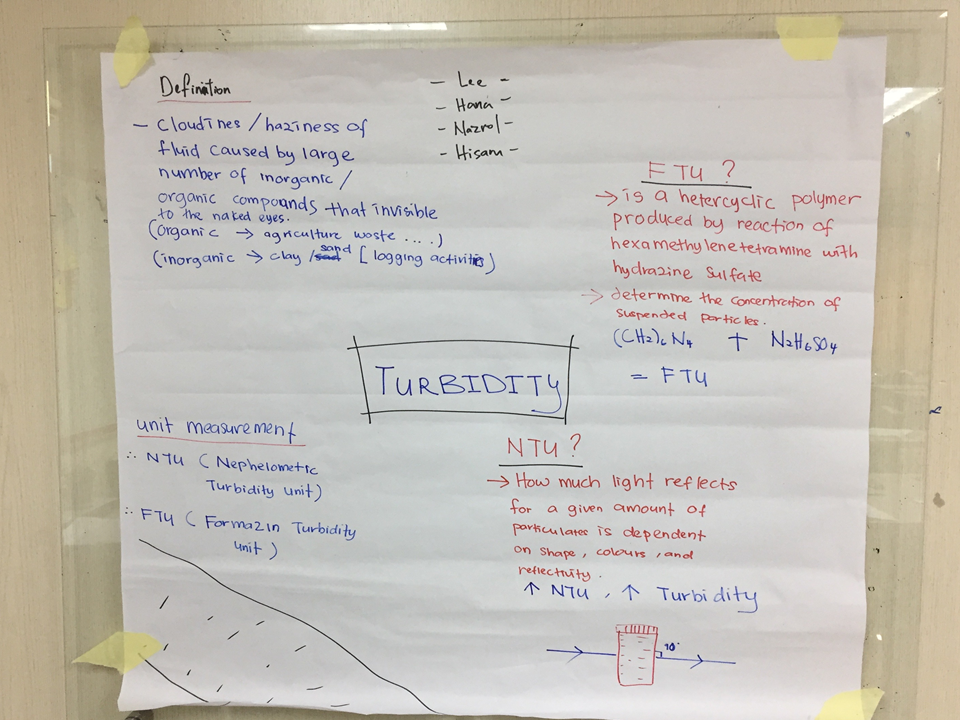 Definition
- Cloudines / haziness of
fluid caused by large
number of inorganic /
organic compounds that invisible
to the naked eyes.
(organic → agriculture waste ....)
(inorganic → clay / sand [logging activities)
- Lee -
- Hana -
- Nazrol -
- Hisam -
FTU ?
→ is a hetercyclic polymer
produced by reaction of
hexamethylenetetramine with
hydrazine sulfate
→ determine the concentration of
suspended particles.
(CH2)6 N4 + N2H6SO4
= FTU
TURBIDITY
unit measurement
∴ NTU (Nephelometic
Turbidity unit)
∴ FTU (Formazin Turbidity
unit)
NTU ?
→ How much light reflects
for a given amount of
particulates is dependent
on shape, colours, and
reflectivity.
↑ NTU, ↑ Turbidity
90°